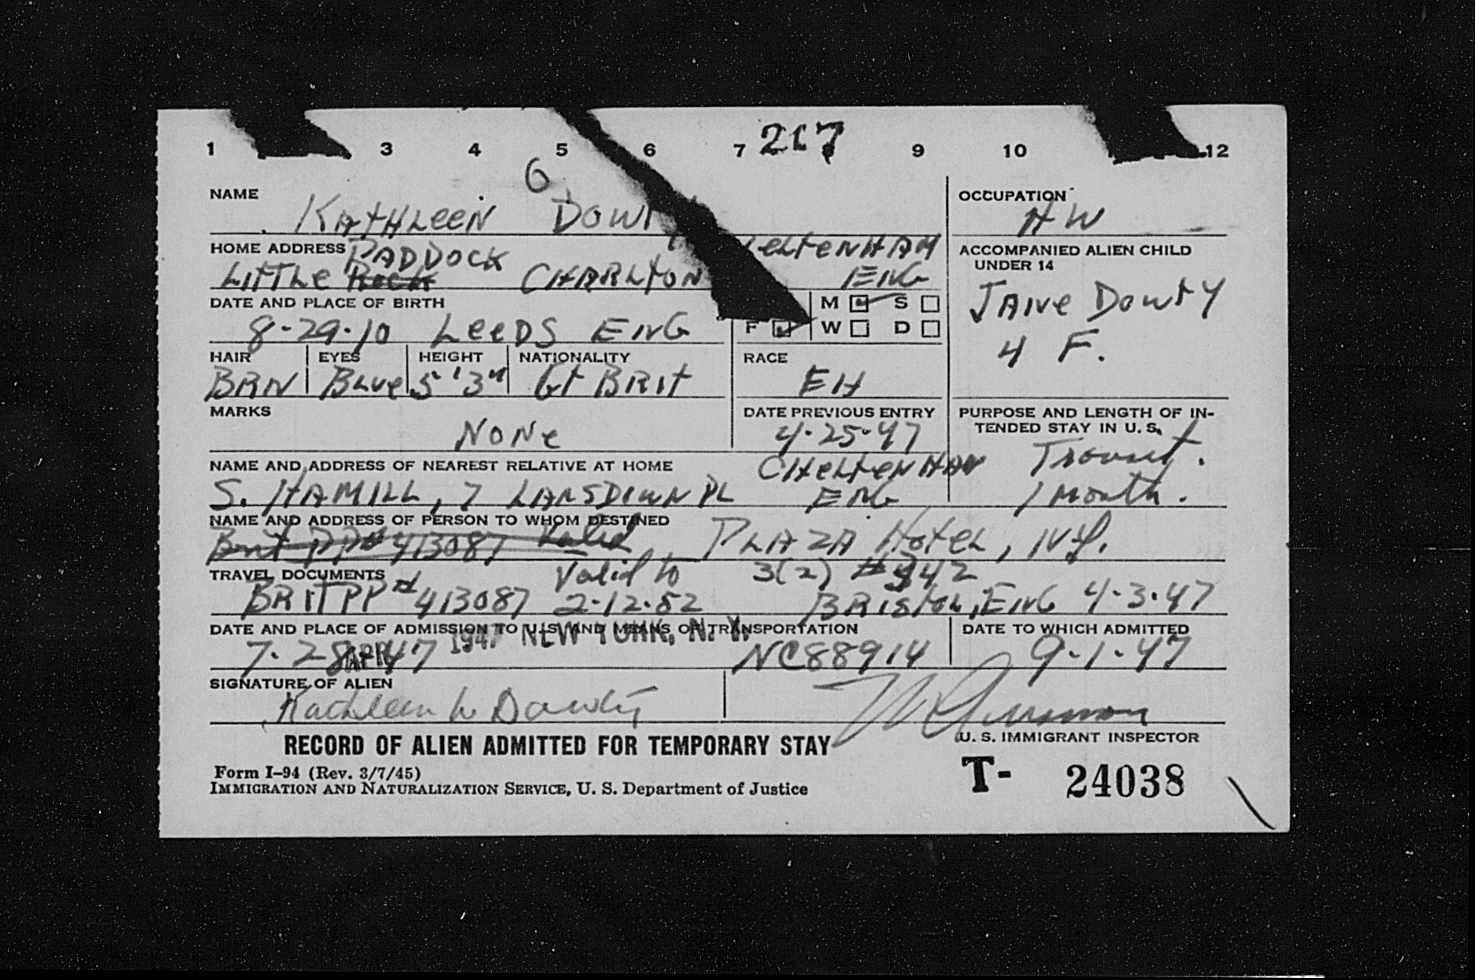 1 3 4 5 6 7 217 9 10 12
G
NAME OCCUPATION
KATHLEEN DOWT HW
HOME ADDRESS PADDOCK ELTENHAM ACCOMPANIED ALIEN CHILD
UNDER 14
LITTLE Rock CHARLTON ENG
DATE AND PLACE OF BIRTH M S JAINE DOWTY
8-29-10 LEEDS ENG F W D 4 F.
HAIR EYES HEIGHT NATIONALITY RACE
BRN BLUE 5'3" GT BRIT EH
MARKS DATE PREVIOUS ENTRY PURPOSE AND LENGTH OF IN-
TENDED STAY IN U.S.
NONE 4-25-47
NAME AND ADDRESS OF NEAREST RELATIVE AT HOME CHELTENHAM Transit.
S. HAMILL, 7 LANSDOWN PL ENG 1 Month.
NAME AND ADDRESS OF PERSON TO WHOM DESTINED
Brit PP# 413087 Valid PLAZA HOTEL, NY.
TRAVEL DOCUMENTS Valid to 3(2) #342
BRIT PP# 413087 2-12-52 BRISTOL, ENG 4-3-47
DATE AND PLACE OF ADMISSION TO U.S. AND MEANS OF TRANSPORTATION DATE TO WHICH ADMITTED
APR 1947 NEW YORK, N. Y.
7-28-47 NC88914 9-1-47
SIGNATURE OF ALIEN
Kathleen W Dowty
RECORD OF ALIEN ADMITTED FOR TEMPORARY STAY U. S. IMMIGRANT INSPECTOR
Form I-94 (Rev. 3/7/45)
IMMIGRATION AND NATURALIZATION SERVICE, U. S. Department of Justice
T- 24038